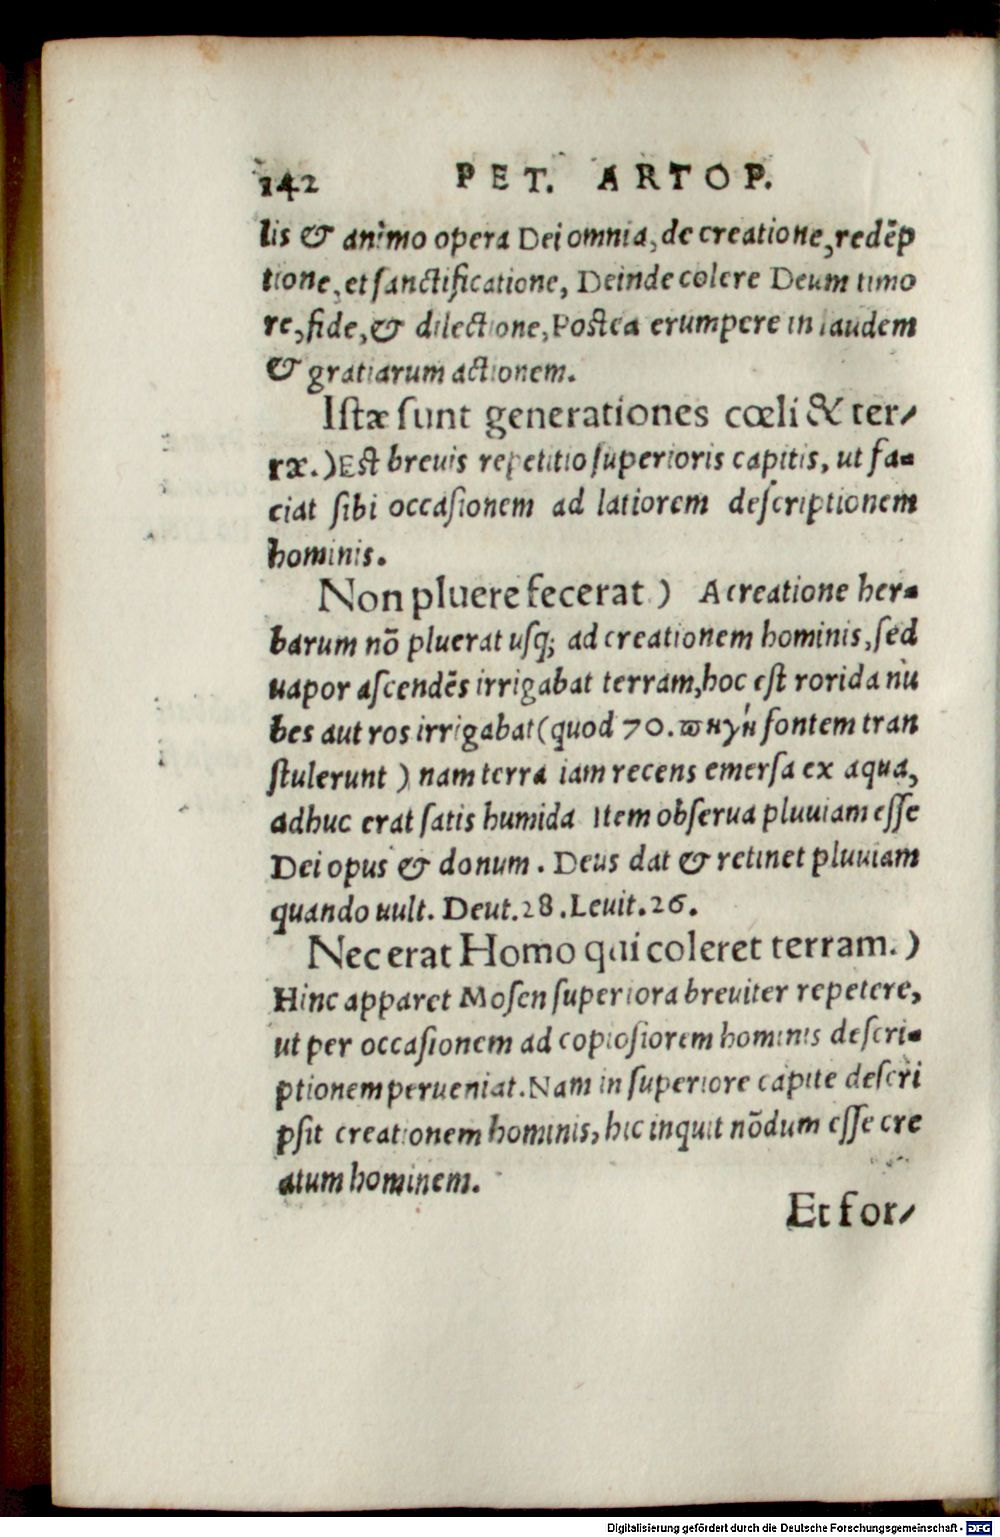 142 PET. ARTOP.
lis & animo opera Dei omnia, de creatione, redẽp
tione, et sanctificatione, Deinde colere Deum timo
re, fide, & dilectione, Postea erumpere in laudem
& gratiarum actionem.
Istæ sunt generationes cœli & ter-
ræ.) Est brevis repetitio superioris capitis, ut fa-
ciat sibi occasionem ad latiorem descriptionem
hominis.
Non pluere fecerat) A creatione her-
barum nõ pluerat usq; ad creationem hominis, sed
uapor ascendẽs irrigabat terram, hoc est rorida nu
bes aut ros irrigabat (quod 70. πηγὴ fontem tran
stulerunt) nam terra iam recens emersa ex aqua,
adhuc erat satis humida Item obserua pluuiam esse
Dei opus & donum. Deus dat & retinet pluuiam
quando uult. Deut. 28. Leuit. 26.
Nec erat Homo qui coleret terram.)
Hinc apparet Mosen superiora breuiter repetere,
ut per occasionem ad copiosiorem hominis descri-
ptionem perueniat. Nam in superiore capite descri
psit creationem hominis, hic inquit nõdum esse cre
atum hominem.
Et for-
Digitalisierung gefördert durch die Deutsche Forschungsgemeinschaft - DFG